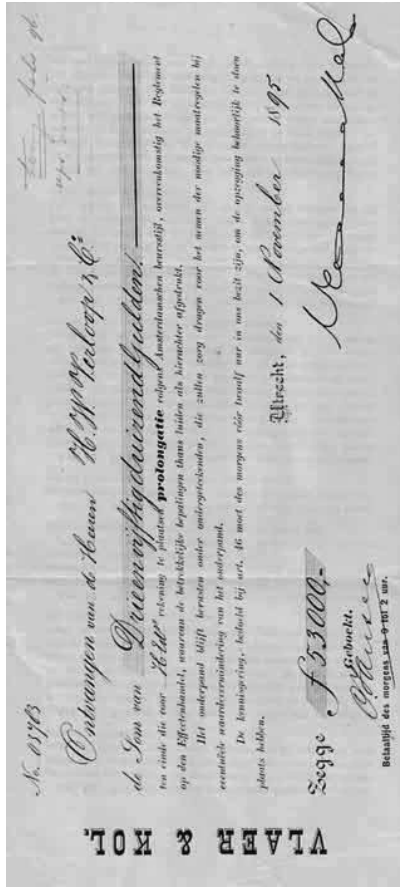 VLAER & KOL.
No. 03703
Ontvangen van de Heeren H. W. Verloop & Co.
de Som van Drieenvijftigduizend Gulden!
ten einde die voor rekening te plaatsen prolongatie volgens Amsterdamschen beurstijd, overeenkomstig het Reglement
op den Effectenhandel, waarvan de betrekkelijke bepalingen thans luiden als hierachter afgedrukt.
Het onderpand blijft berusten onder ondergeteekenden, die zullen zorg dragen voor het nemen der noodige maatregelen bij
eventuele waardevermindering van het onderpand.
De kennisgeving, bedoeld bij art. 46 moet des morgens vóór twaalf uur in ons bezit zijn, om de opzegging behoorlijk te doen
plaats hebben.
Utrecht, den 1 November 1895
Zegge f 53000,-
Geboekt.
Betaaltijd des morgens van 9 tot 2 uur.